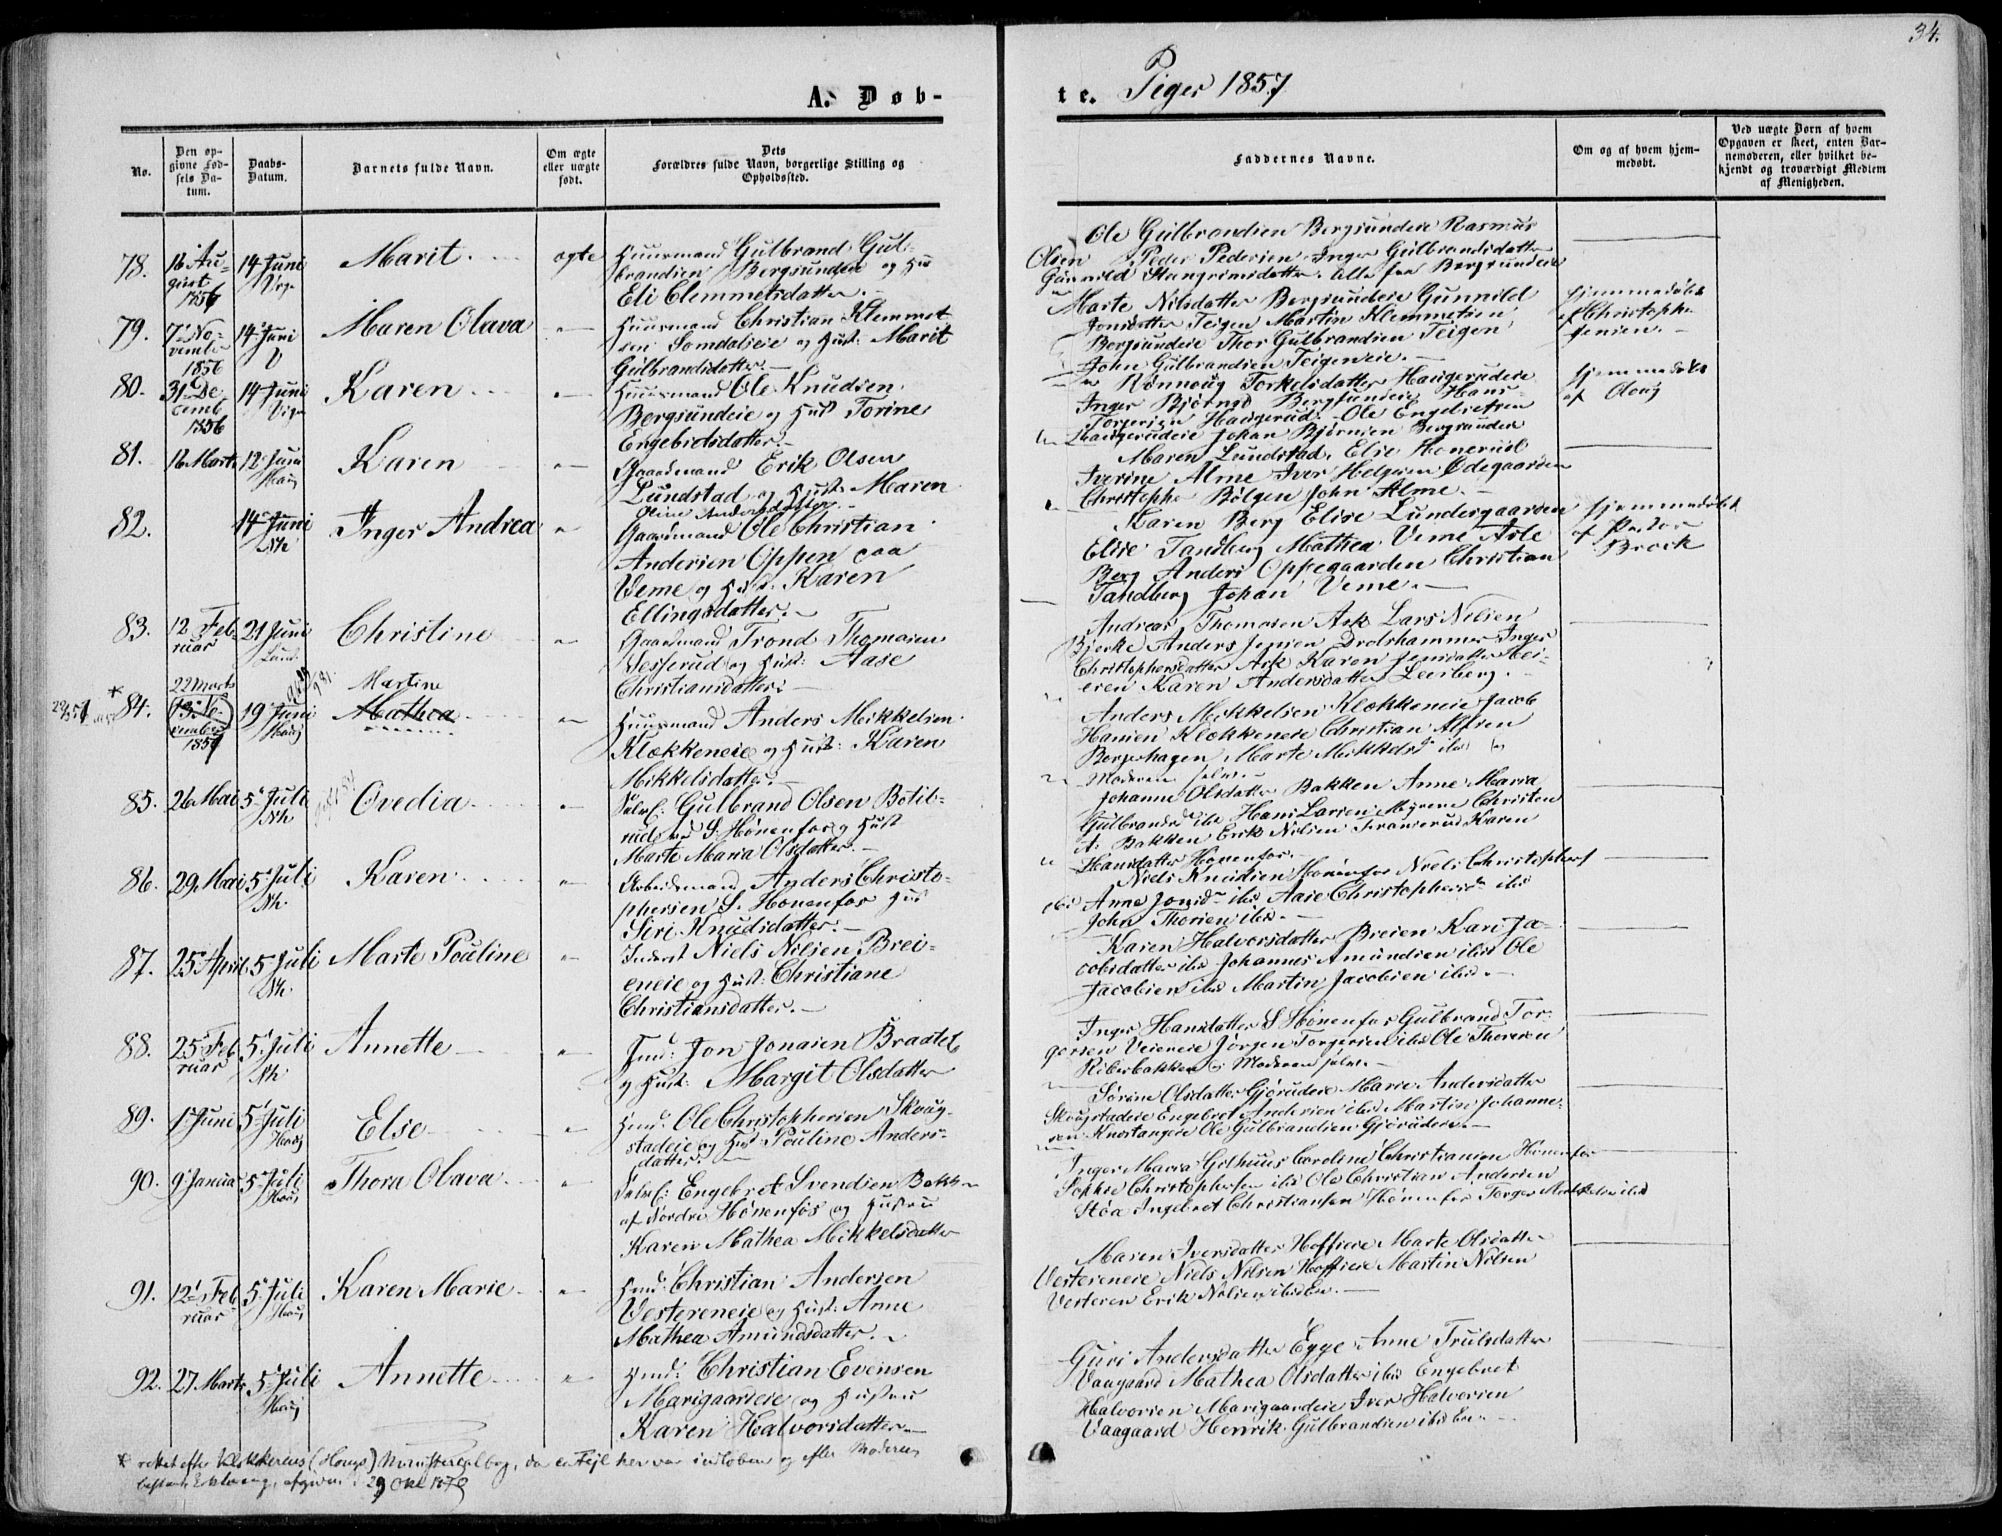 34.
A. Døb-
te. Piger 1857
No.
Den op-
givne Fød-
sels Da-
tum.
Daabs-
Datum.
Barnets fulde Navn.
Om ægte
eller uægte
født.
Dets
Forældres fulde Navn, borgerlige Stilling og
Opholdssted.
Faddernes Navne.
Om og af hvem hjem-
medøbt.
Ved uægte Børn af hvem
Opgaven er skeet, enten Bar-
nemoderen, eller hvilket be-
kjendt og troværdigt Medlem
af Menigheden.
78. 16 Au-
gust
1856
14 Juni
Marit.
ægte
Huusmand Gulbrand Gul-
brandsen Bergsundeie og Hus
Eli Clemmetsdatter.
Ole Gulbrandsen Bergsundeie Rasmus
Olsen Peder Pedersen Inger Gulbrandsdatter
Gunnild Hangrimsdatter. Alle fra Bergsundeie
79. 7 No-
vember
1856
14 Juni
Maren Olava
Huusmand Christian Klemmet-
sen Somdaleie og Hust: Marit
Gulbrandsdatter.
Marte Nilsdatter Bergsundeie Gunnild
Jonsdatter Teigen Martin Klemmetsen
Bergsundeie Thor Gulbrandsen Teigen
John Gulbrandsen Teigeneie.
hjemmedøbt
af Christoph
Jensen.
80. 31 De
cemb
1856
14 Juni
Karen
Huusmand Ole Knudsen
Bergsundeie og Hust Torine
Engebretsdatter.
Rønnoug Torkelsdatter Haugerudeie
Inger Bjørnsd Bergsundeie Hans
Torgersen Haugerud. Ole Engebretsen
Haugerudeie Johan Bjørnsen Bergsundeie
hjemmedøbt
81. 16 Marts
12 Juni
Haug
Karen
Gaardmand Erik Olsen
Lundstad og Hust: Maren
Oline Andersdatter.
Maren Lundstad, Elise Honerud
Iverine Alme Iver Helgesen Ødegaarden
Christopher Bølgen John Alme.
82.
14 Juni
Nh
Inger Andrea
Gaardmand Ole Christian
Andersen Oppen paa
Veme og Hust. Karen
Ellingsdatter.
Karen Berg Elise Lundergaarden
Elise Tandberg Mathea Veme Asle
Berg Anders Oppegaarden Christian
Tandberg Johan Veme.
hjemmedøbt
af Pastor
Brock
83. 12 Feb-
ruar
21 Juni
Lund.
Christine
Gaardmand Trond Thomasen
Vesserud og Hust: Aase
Christiansdatter.
Andreas Thomasen Ask Lars Nilsen
Bjerke Anders Jensen Drolshammer Inger
Christophersdatter Ask Karen Jensdatter Mei-
eren Karen Andersdatter Leerberg.
84.
22 Marts
19 Juni
Haug
Martine
Mathea
Huusmand Anders Mikkelsen
Klækkeneie og Hust: Karen
Mikkelsdatter.
Anders Mikkelsen Klækkeneie Jacob
Hansen Klækkeneie Christian Alfsen
Borgerhagen Marte Mikkelsd ibid og
Moderen selv.
85. 26 Mai
5 Juli
Nh
Ovedia
Selvf: Gulbrand Olsen Botil-
rud ved S. Hønenfos og Hust
Marte Maria Olsdatter.
Johanne Olsdatter Bakken Anne Maria
Gulbrandsd ibd Hans Larsen Myrene Christen
A. Bakken Erik Nilsen Karen
Hansdatter Hønenfos.
86. 29 Mai
5 Juli
Nh.
Karen
Arbeidsmand Anders Christo-
phersen S. Hønenfos Hus
Siri Knudsdatter.
Niels Knudsen Hønenfos Niels Christophers
ibd Anne Jonsdr ibd Aase Christophersdr ibd
John Thorsen ibd.
87. 25 April
5 Juli
Nh
Marte Pouline
Inderst Niels Nilsen Brei-
eneie og Hust: Christiane
Christiansdatter.
Karen Halvorsdatter Breien Kari Ja-
cobsdatter ibd Johannes Amundsen ibid Ole
Jacobsen ibd Martin Jacobsen ibd.
88. 25 Feb
ruar
5 Juli
Nh
Annette
Hmd: Jon Jonasen Braatet
og Hust: Margit Olsdatter
Inger Hansdatter S Hønenfos Gulbrand Tor-
gersen Veieneie Jørgen Torgersen ibid Ole Thoresen
Riberbakken og Moderen selv.
89. 1 Juni
5 Juli
Haug
Else
Hmd: Ole Christophersen Skoug-
stadeie og Hust Pouline Anders-
datter.
Sørine Olsdatter Gjørudeie Marie Andersdatter
Skougstadeie Engebret Andersen ibid Martin Johanne-
sen Knestangeie Ole Gulbrandsen Gjørudeie.
90. 9 Januar
5 Juli
Haug
Thora Olava
Selvf: Engebret Svendsen Bakke
af Nordre Hønenfos og Hustru
Karen Mathea Mikkelsdatter
Inger Maria Gilhuus Caroline Christiansen Hønenfos
Sophie Christophersen ibid Ole Christian Andersen
Støa Ingebret Christiansen Hønenfos Torger Mikkelsen ibid
91. 12 Feb
ruar
5 Juli
Haug
Karen Marie
Hmd: Christian Andersen
Vestereneie og Hust: Anne
Mathea Amundsdatter.
Maren Iversdatter Hoffseie Marte Olsdatter
Vestereneie Niels Nilsen Hoffseie Martin Nilsen
Vesteren Erik Nilsen ibidem.
92. 27 Marts
5 Juli
Haug
Annette
Hmd: Christian Evensen
Marigaardeie og Hustru
Karen Halvorsdatter
Guri Andersdatter Egge Anne Trulsdatter
Vaagaard Mathea Olsdatter ibid Engebret
Halvorsen Marigaardeie Iver Halvorsen
Vaagaard Henrik Gulbrandsen ibid
* rettet efter Klokkerens (Hougs) Ministerialbog, da en Fejl her var indløben og efter Moderens
29 Okt 1870